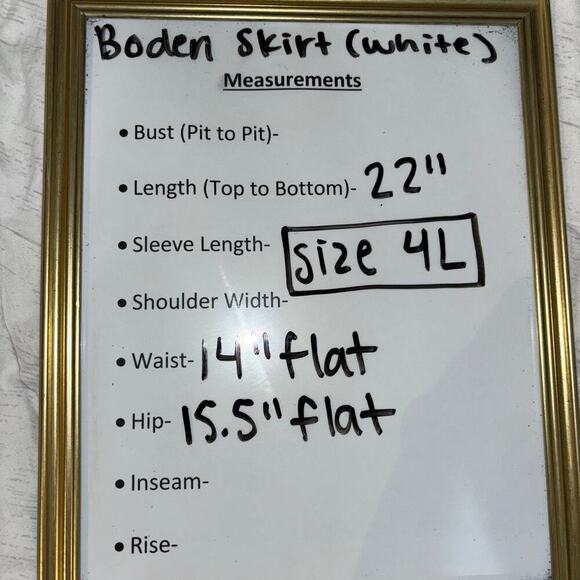 Boden Skirt (white)
Measurements
• Bust (Pit to Pit)-
• Length (Top to Bottom)- 22"
• Sleeve Length-
size 4L
• Shoulder Width-
• Waist- 14" flat
• Hip- 15.5" flat
• Inseam-
• Rise-